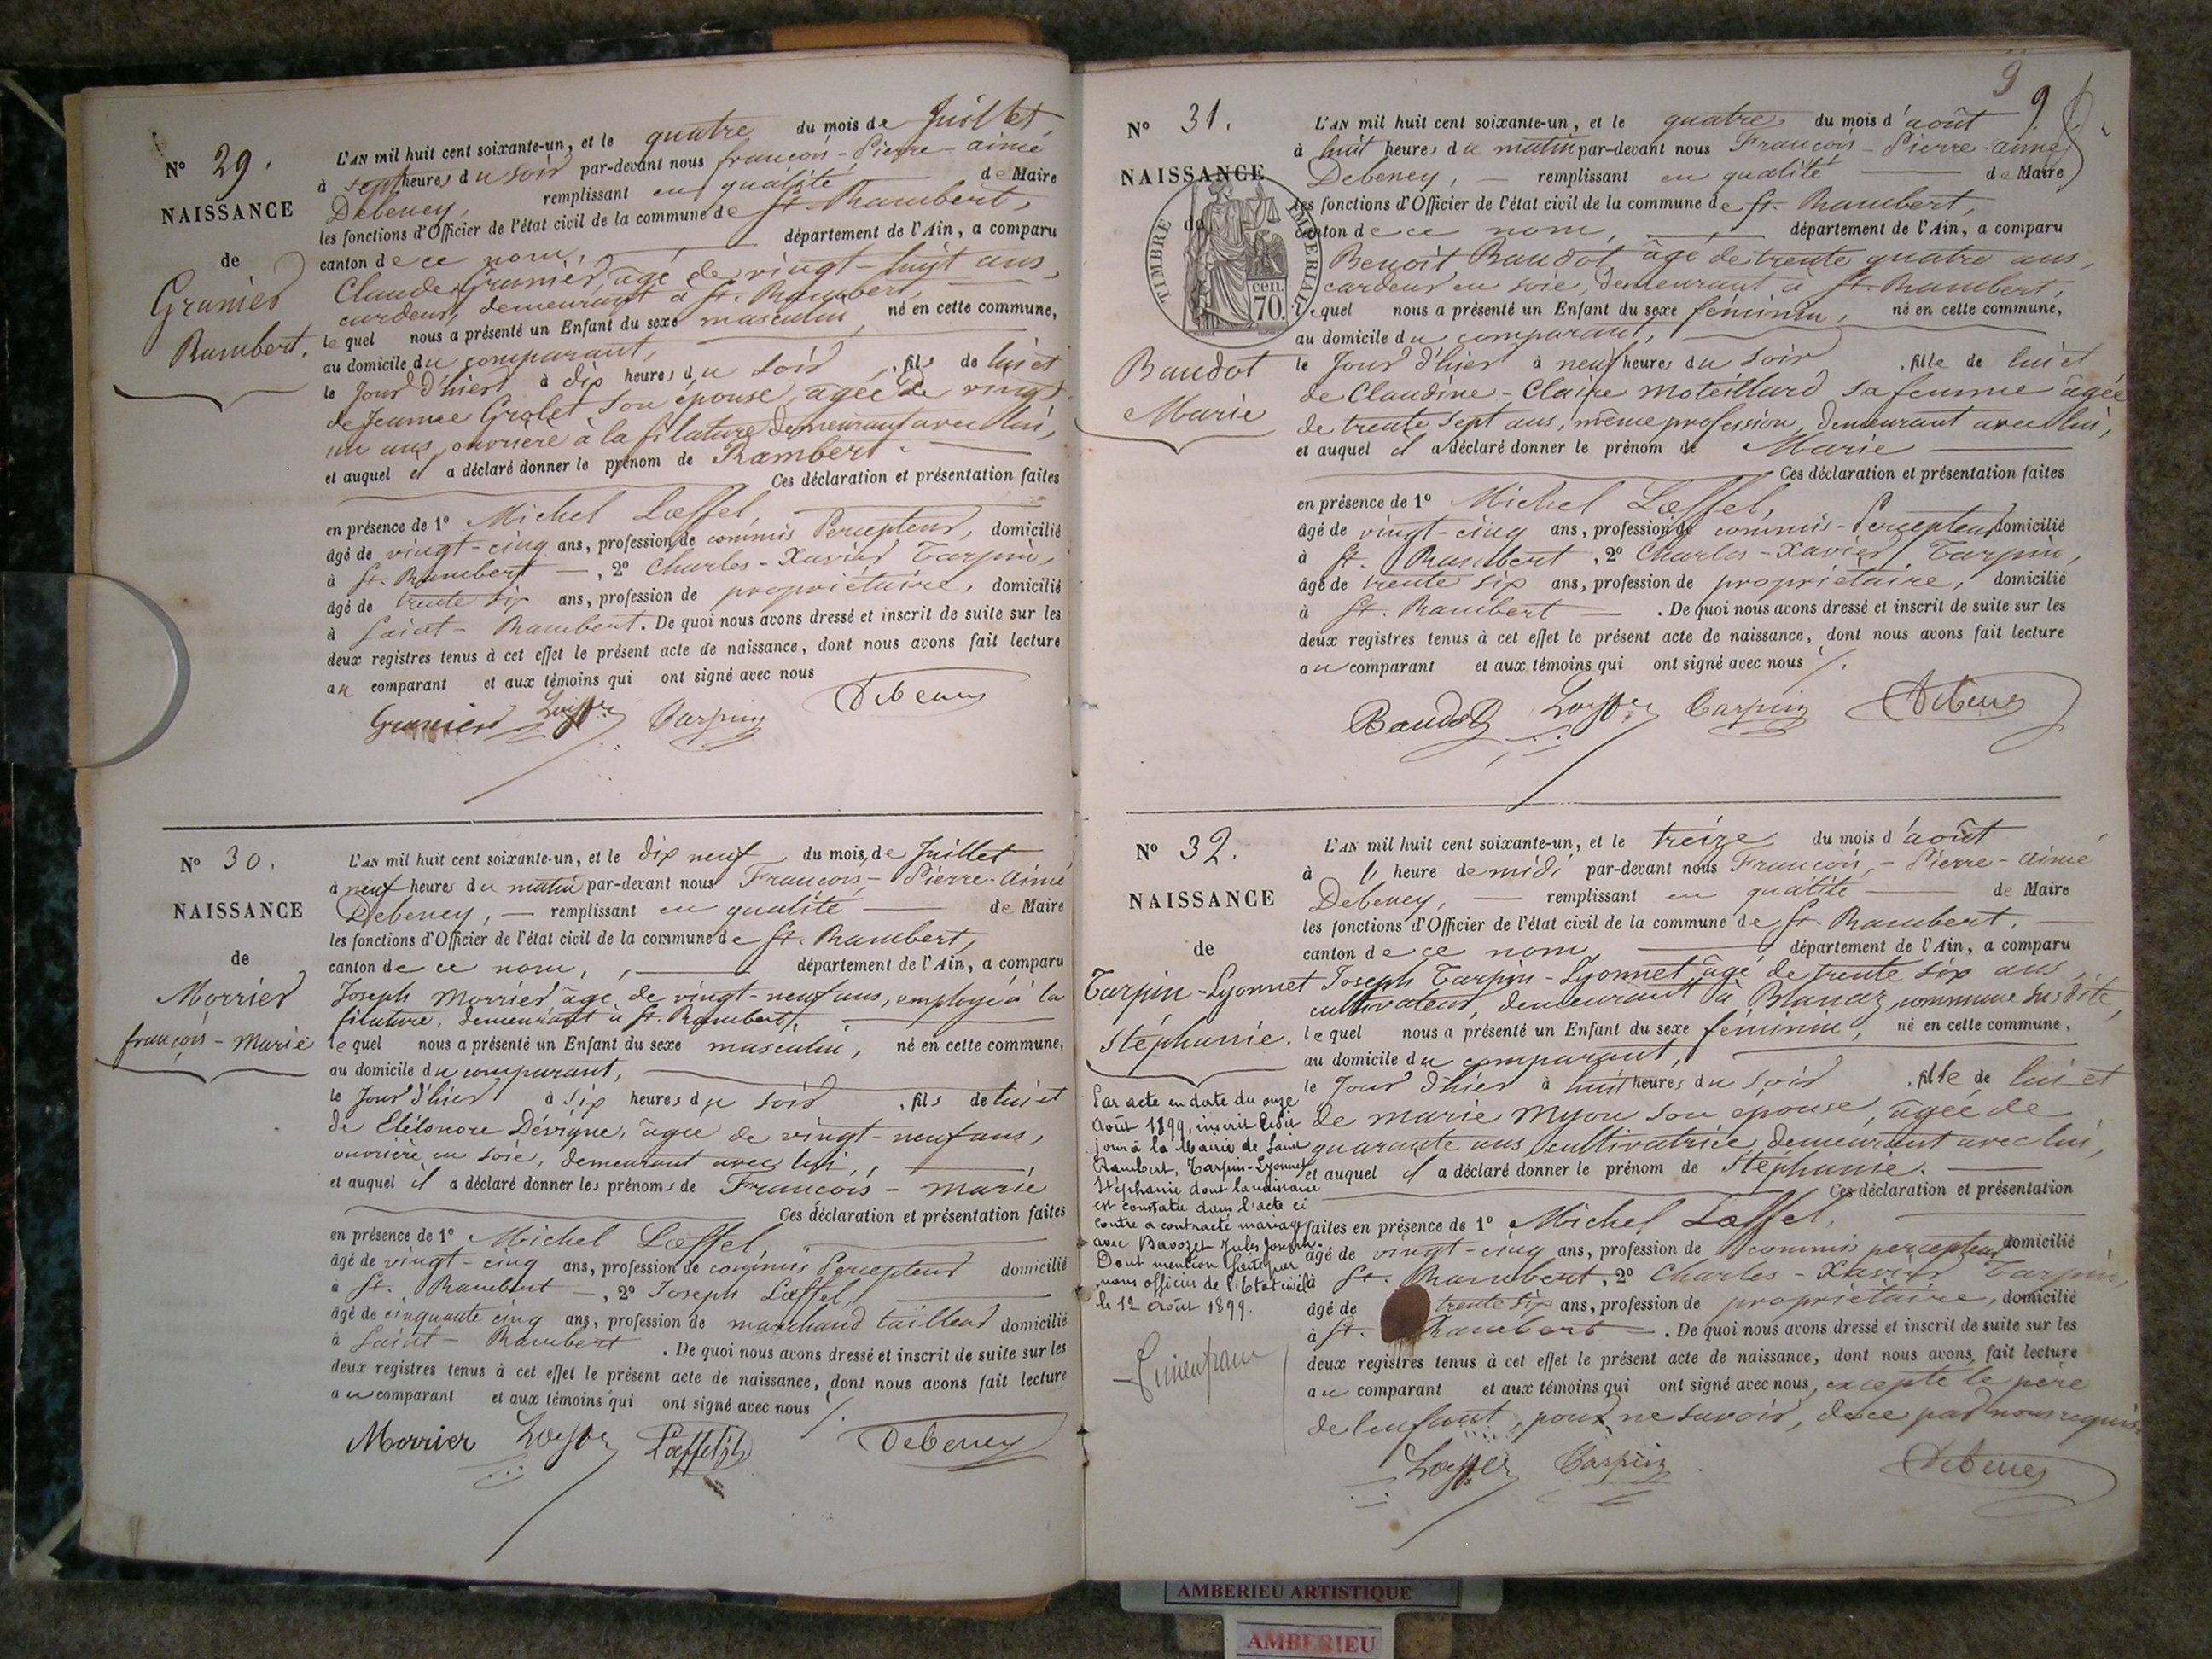 N° 29.
NAISSANCE
de
Granier
Rambert.
L'AN mil huit cent soixante-un, et le quatre du mois de Juillet,
à sept heures du soir par-devant nous françois-Pierre-aimé
Debeney, remplissant en qualité de Maire
les fonctions d'Officier de l'état civil de la commune de St. Rambert,
canton de ce nom, département de l'Ain, a comparu
Claude Granier, âgé de vingt-huit ans,
cardeur, demeurant à St. Rambert,
lequel nous a présenté un Enfant du sexe masculin, né en cette commune,
au domicile du comparant,
le Jour d'hier à dix heures du soir, fils de lui et
de Jeanne Grolet son épouse, âgée de vingt
un ans, ouvrière à la filature demeurant avec lui,
et auquel il a déclaré donner le prénom de Rambert.
Ces déclaration et présentation faites
en présence de 1° Michel Lœffel,
âgé de vingt-cinq ans, profession de commis Percepteur, domicilié
à St. Rambert, 2° Charles-Xavier Tarpin,
âgé de trente six ans, profession de propriétaire, domicilié
à Saint-Rambert. De quoi nous avons dressé et inscrit de suite sur les
deux registres tenus à cet effet le présent acte de naissance, dont nous avons fait lecture
au comparant et aux témoins qui ont signé avec nous
Granier Lœffel Tarpin Debeney
N° 30.
NAISSANCE
de
Morrier
françois-Marie
L'AN mil huit cent soixante-un, et le dix neuf du mois de Juillet
à neuf heures du matin par-devant nous François-Pierre-Aimé
Debeney, remplissant en qualité de Maire
les fonctions d'Officier de l'état civil de la commune de St. Rambert,
canton de ce nom, département de l'Ain, a comparu
Joseph Morrier âgé de vingt-neuf ans, employé à la
filature, demeurant à St. Rambert,
lequel nous a présenté un Enfant du sexe masculin, né en cette commune,
au domicile du comparant,
le Jour d'hier à six heures du soir, fils de lui et
de Eléonore Dévigne, âgée de vingt-neuf ans,
ouvrière en soie, demeurant avec lui,
et auquel il a déclaré donner les prénoms de François-Marie
Ces déclaration et présentation faites
en présence de 1° Michel Lœffel,
âgé de vingt-cinq ans, profession de commis Percepteur domicilié
à St. Rambert, 2° Joseph Lœffel,
âgé de cinquante cinq ans, profession de marchand tailleur domicilié
à Saint-Rambert. De quoi nous avons dressé et inscrit de suite sur les
deux registres tenus à cet effet le présent acte de naissance, dont nous avons fait lecture
au comparant et aux témoins qui ont signé avec nous
Morrier Lœffel Lœffel Debeney
9
9
N° 31.
NAISSANCE
de
TIMBRE IMPERIAL
70 cen.
Baudot
Marie
L'AN mil huit cent soixante-un, et le quatre du mois d'août
à huit heures du matin par-devant nous François-Pierre-aimé
Debeney, remplissant en qualité de Maire
les fonctions d'Officier de l'état civil de la commune de St. Rambert,
canton de ce nom, département de l'Ain, a comparu
Benoit Baudot âgé de trente quatre ans,
cardeur en soie, demeurant à St. Rambert,
lequel nous a présenté un Enfant du sexe féminin, né en cette commune,
au domicile du comparant,
le Jour d'hier à neuf heures du soir, fille de lui et
de Claudine-Claire Moteillard sa femme âgée
de trente sept ans, même profession, demeurant avec lui,
et auquel il a déclaré donner le prénom de Marie
Ces déclaration et présentation faites
en présence de 1° Michel Lœffel,
âgé de vingt-cinq ans, profession de commis-Percepteur domicilié
à St. Rambert, 2° Charles-Xavier Tarpin,
âgé de trente six ans, profession de propriétaire, domicilié
à St. Rambert. De quoi nous avons dressé et inscrit de suite sur les
deux registres tenus à cet effet le présent acte de naissance, dont nous avons fait lecture
au comparant et aux témoins qui ont signé avec nous
Baudot Lœffel Tarpin Debeney
N° 32.
NAISSANCE
de
Tarpin-Lyonnet
Stéphanie.
Par acte en date du onze
août 1899, inscrit ledit
jour à la Mairie de Saint
Rambert, Tarpin-Lyonnet
Stéphanie dont la naissance
est constatée dans l'acte ci
contre a contracté mariage
avec Bavozet Jules Joseph.
Dont mention faite par
nous officier de l'Etat civil
le 12 août 1899.
L'AN mil huit cent soixante-un, et le treize du mois d'août
à heure de midi par-devant nous François-Pierre-Aimé
Debeney, remplissant en qualité de Maire
les fonctions d'Officier de l'état civil de la commune de St. Rambert,
canton de ce nom, département de l'Ain, a comparu
Joseph Tarpin-Lyonnet âgé de trente six ans,
cultivateur, demeurant à Blanaz, commune susdite,
lequel nous a présenté un Enfant du sexe féminin, né en cette commune,
au domicile du comparant,
le Jour d'hier à huit heures du soir, fille de lui et
de marie Myon son épouse, âgée de
quarante ans cultivatrice demeurant avec lui,
et auquel il a déclaré donner le prénom de Stéphanie.
Ces déclaration et présentation
faites en présence de 1° Michel Lœffel,
âgé de vingt-cinq ans, profession de commis percepteur domicilié
à St. Rambert, 2° Charles-Xavier Tarpin,
âgé de trente six ans, profession de propriétaire, domicilié
à St. Rambert. De quoi nous avons dressé et inscrit de suite sur les
deux registres tenus à cet effet le présent acte de naissance, dont nous avons fait lecture
au comparant et aux témoins qui ont signé avec nous, excepté le père
de l'enfant, pour ne savoir, de ce par nous requis.
Lœffel Tarpin Debeney
AMBERIEU ARTISTIQUE
AMBERIEU